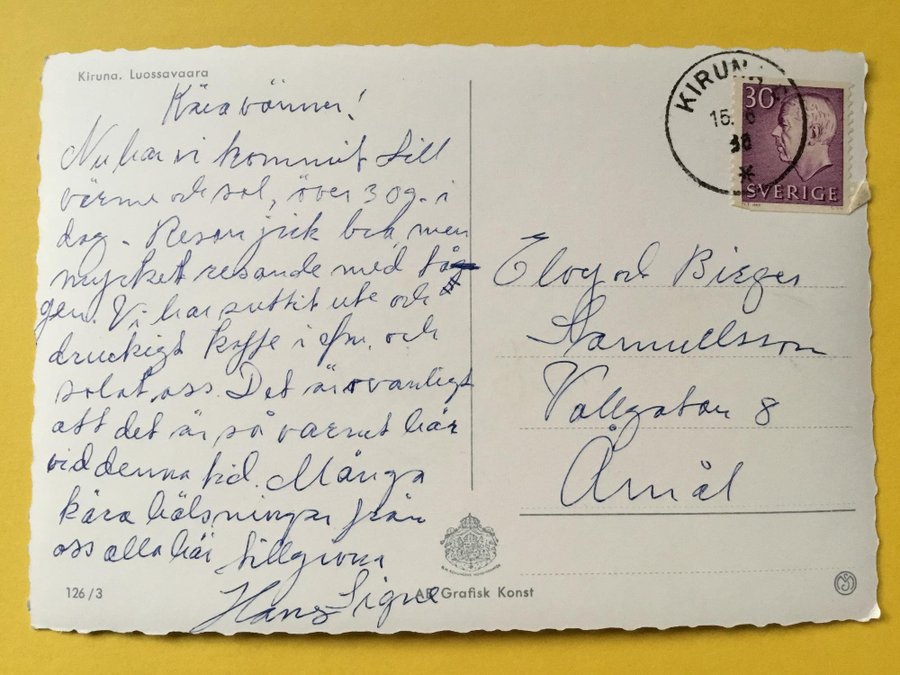 Kiruna. Luossavaara
Kära vänner!
Nu har vi kommit till
värme och sol, över 30 g. i
dag. Resan gick bra men
mycket resande med tå
gen. Vi har suttit ute och
druckigt kaffe i efm. och
solat oss. Det är ovanligt
att det är så varmt här
vid denna tid. Många
kära hälsningar från
oss alla här
Hans Signe
126/3
AB Grafisk Konst
KIRUNA
15. 6
30
SVERIGE
och Birger
Samuellsson
Vallgatan 8
Åmål